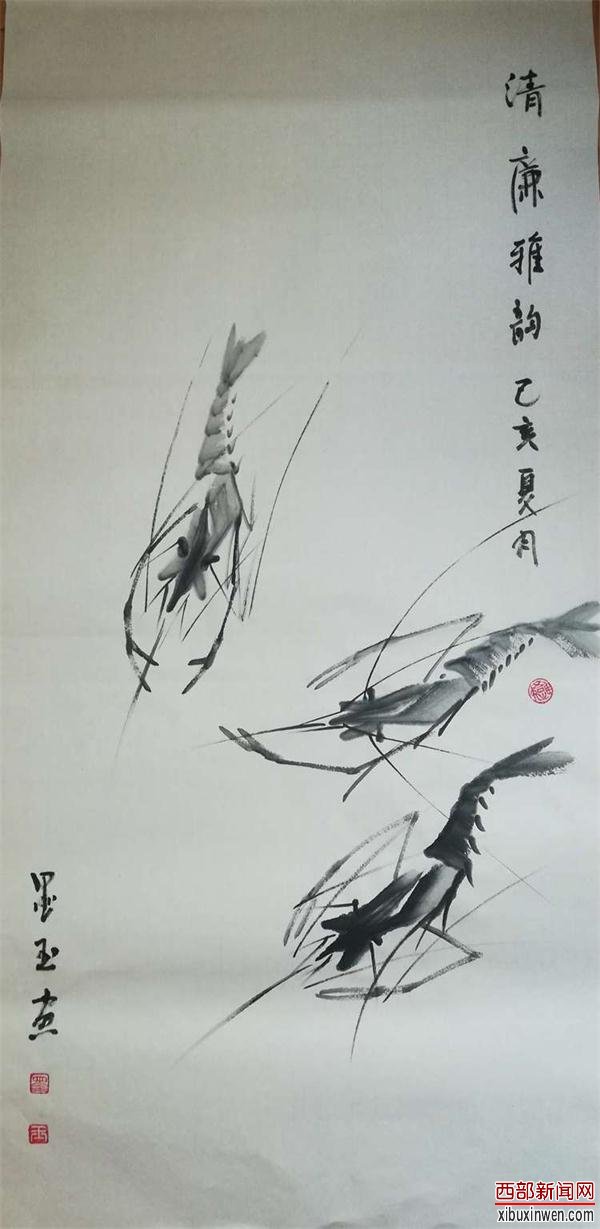 清廉雅韵 己亥夏月
墨玉画
西部新闻网
xibuxinwen.com